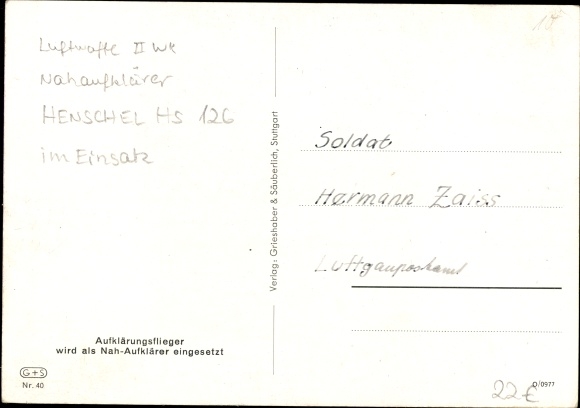 Luftwaffe II WK
Nahaufklärer
HENSCHEL HS 126
im Einsatz
Aufklärungsflieger
wird als Nah-Aufklärer eingesetzt
G+S
Nr. 40
Verlag: Grieshaber & Säuberlich, Stuttgart
Soldat
Hermann Zaiss
Luftgaupostamt
D/0977
22 €